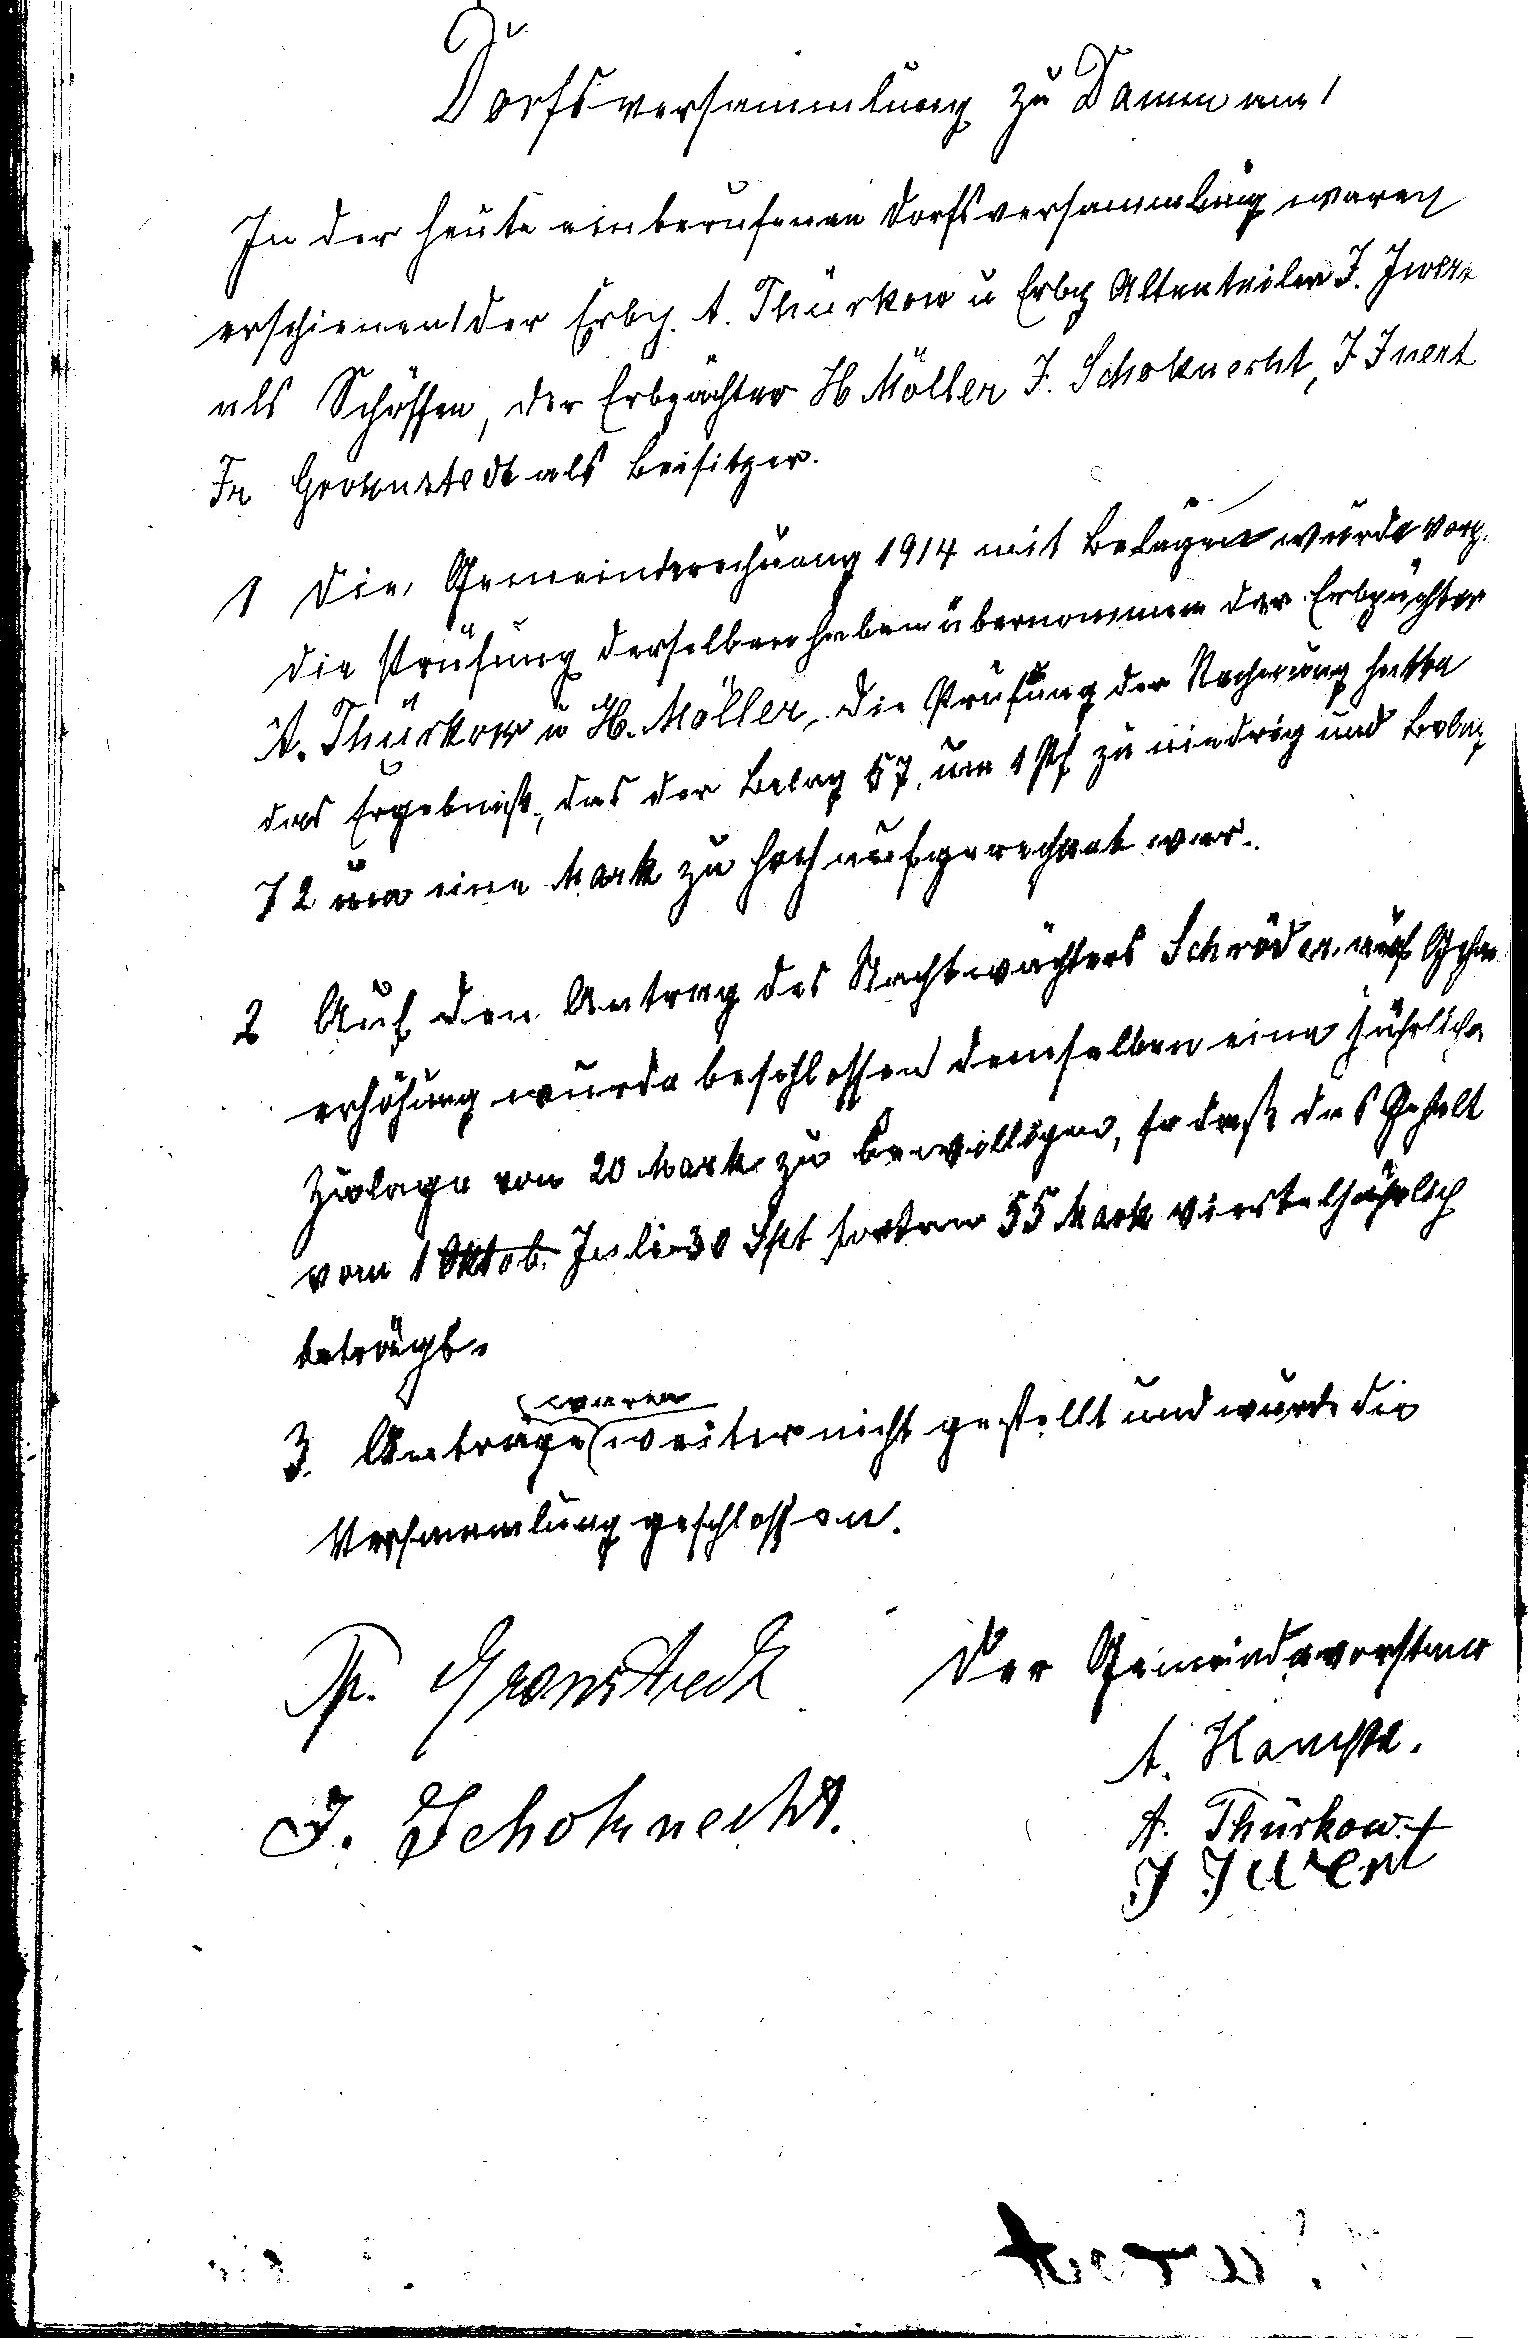 Dorfsversammlung zu Damm am 1
In der heute einberufenen Dorfsversammlung waren
erschienen der Erbp. A. Thürkow u Erbp Altenteiler J. Jwert
als Schöffen, der Erbpächter H Möller J. Schoknecht, J Jwert
Fr Gronstedt als Beisitzer.
1 Die Gemeinderechnung 1914 mit Belägen wurde vorg.
die Prüfung derselben haben übernommen der Erbpächter
A. Thürkow u H. Möller. Die Prüfung der Rechnung hatte
das Ergebniß, das der Belag 57. um 1 Pf zu niedrig und Belag
72 um eine Mark zu hoch aufgerechnet war.
2 Auf den Antrag des Nachtwächters Schröder auf Geh
erhöhung wurde beschlossen demselben eine jährliche
Zulage von 20 Mark zu bewilligen, so daß das Gehalt
vom 1 Oktob. Juli-30 Spt fortan 55 Mark vierteljährlich
beträgt.
waren
3. Anträge weiter nicht gestellt und wurde die
Versammlung geschlossen.
Fr. Gronstedt Der Gemeindevorstand
A.
J. Schoknecht. A. Thürkow.
J Jwert